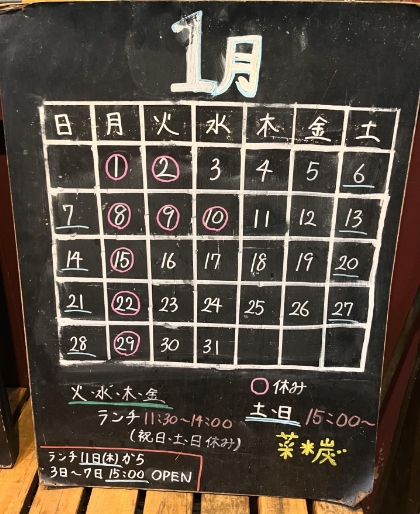 1月
日 月 火 水 木 金 土
1 2 3 4 5 6
7 8 9 10 11 12 13
14 15 16 17 18 19 20
21 22 23 24 25 26 27
28 29 30 31
○休み
火・水・木・金
ランチ 11:30~14:00
(祝日・土・日休み)
土・日 15:00~
菜々炭
ランチ 11日(木)から
3日~7日 15:00 OPEN